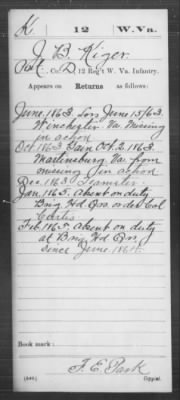 K. 12 W.Va.
J B Kiger
Pvt., Co. D, 12 Reg't W. Va. Infantry.
Appears on Returns as follows:
June, 1863. Loss June 15/63.
Winchester Va. Missing
in action
Oct 1863 Gain Oct. 2, 1863.
Martinsburg Va. from
missing in action
Dec. 1863. Teamster
Jan. 1865. Absent on duty
Brig. Hd Qrs. order Col
Curtis
Feb 1865. Absent on duty
at Brig. Hd Qrs.
since June. 1864.
Book mark:
F. E. Park
(546) Copyist.